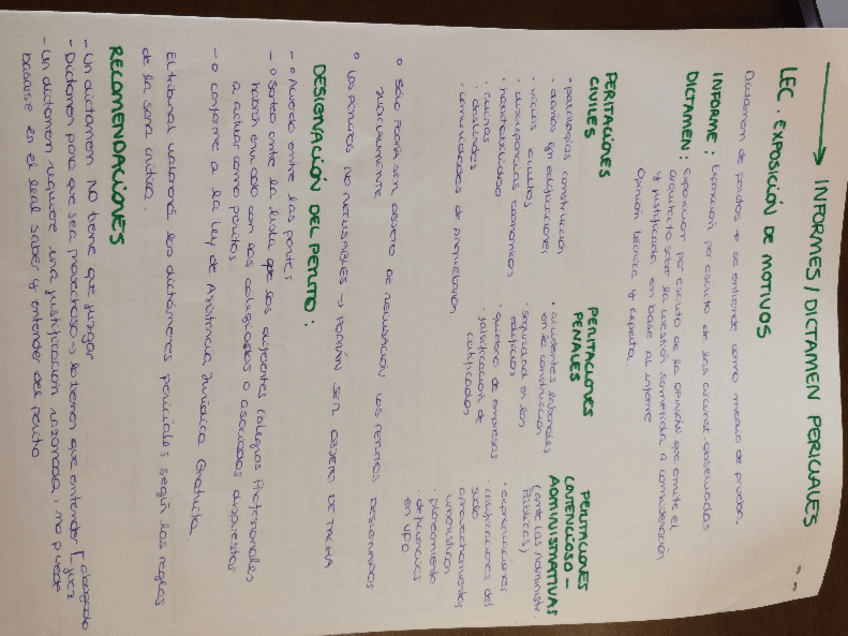 → INFORMES / DICTAMEN PERICIALES
LEC. EXPOSICIÓN DE MOTIVOS
Dictamen de peritos → se entiende como medio de prueba.
INFORME : Exposición por escrito de las circunst. observadas
DICTAMEN : Exposición por escrito de la opinión que emite el
arquitecto sobre la cuestión sometida a consideración
y justificada en base al informe
Opinión técnica y experta.
PERITACIONES
CIVILES
• patologías construcción
• daños en edificaciones
• vicios ocultos
• discrepancias económicas
• habitabilidad
• ruinas
• deslindes
• comunidades de propietarios
PERITACIONES
PENALES
• accidentes laborales
en la construcción
• seguridad en los
edificios
• quiebra de empresas
• falsificación de
certificados
PERITACIONES
CONTENCIOSO -
ADMINISTRATIVAS
(ante las Administr.
Públicas)
• expropiaciones
• calificaciones del
suelo
• aprovechamientos
urbanísticos
• planeamiento
• deficiencias
en VPO
o Sólo podrán ser objeto de recusación los peritos designados
judicialmente
o los peritos no recusables → podrán ser objeto de tacha
DESIGNACIÓN DEL PERITO :
- o Acuerdo entre las partes
- o Sorteo entre la lista que los diferentes Colegios Profesionales
habrán enviado con los colegiados o asociados dispuestos
a actuar como peritos.
- o conforme a la Ley de Asistencia Jurídica Gratuita.
El tribunal valorará los dictámenes periciales según las reglas
de la sana crítica.
RECOMENDACIONES
- Un dictamen NO tiene que juzgar
- Dictamen para que sea provechoso → lo tienen que entender [ abogado
juez
- Un dictamen requiere una justificación razonada, no puede
basarse en el leal saber y entender del perito